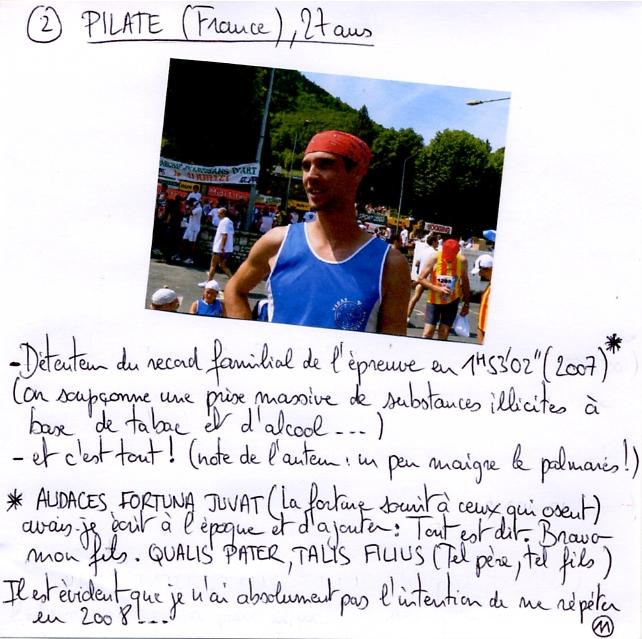 ② PILATE (France), 27 ans
MARCHE ARTISANS D'ART
- Détenteur du record familial de l'épreuve en 1H53'02" (2007)*
(on soupçonne une prise massive de substances illicites à
base de tabac et d'alcool ....)
- et c'est tout ! (note de l'auteur : un peu maigre le palmarès !)
* AUDACES FORTUNA JUVAT (La fortune sourit à ceux qui osent)
avais-je écrit à l'époque et d'ajouter : Tout est dit. Bravo
mon fils. QUALIS PATER, TALIS FILIUS (Tel père, tel fils)
Il est évident que je n'ai absolument pas l'intention de me répéter
en 2008 ....
⑪